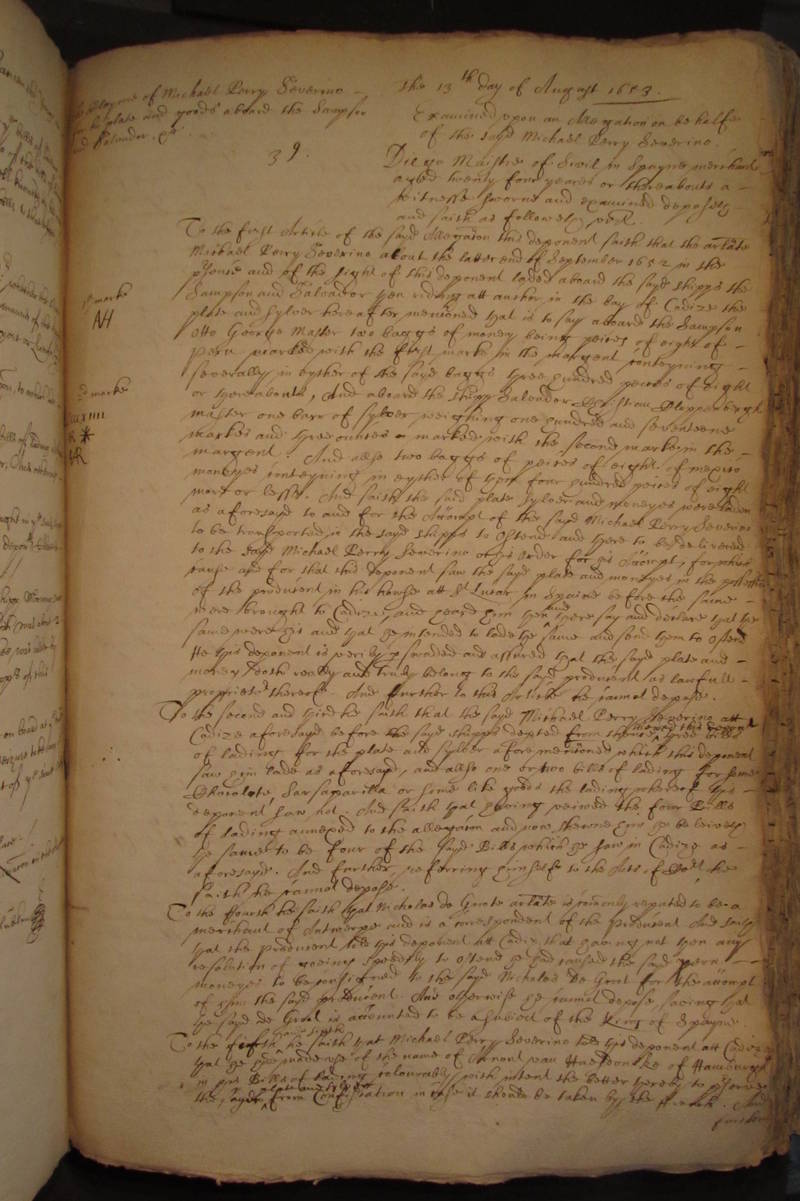 The 13th day of August 1653.
of Michael Perry Severino
plate and goods aboard the Sampson
and Salvador
39.
Examined upon an Allegation on behalfe
of the sayd Michael Perry Severino.
of Sivil in Spayne merchant
aged twenty four yeares or thereabouts a
witnesse sworne and examined deposeth
and saith as followeth vizt.
To the first Article of the said Allegation this deponent saith that the arlate
Michael Perry Severino about the latter end of September 1652 in the
and of the sight of this deponent laded aboard the sayd shipps the
Sampson and Salvador then riding att anchor in the bay of Cadize the
plate and sylver hereafter mentioned that is to say aboard the Sampson
Otto George Master two baggs of money being peices of eight of
Peru marked with the first marke in the margent conteyning
severally in eyther of the sayd baggs three hundred peices of eight
or thereabouts, And aboard the shipp Salvador Christian
master one barr of sylver weighing one hundred and seventeene
markes and three ounces marked with the second marke in the
margent. And allso two baggs of peices of eight of mexico
moneyes conteyning in eyther of them four hundred peices of eight
more or lesse. And saith the said plate sylver and moneyes were laden
as aforesayd to and for the Accompt of the sayd Michael Perry Severino
to be transported in the sayd shipps to Ostend and there to be delivered
to the sayd Michael Perry Severino or his order for his Accompt, for which
cause and for that this deponent saw the sayd plate and moneyes in the
of the producent in his howse att St Lucar in Spaine before the same
were brought to Cadize, and heard him then and there say and declare that the
same were his and that he intended to lade the same and send them to Ostend
He this deponent is verily perswaded and assured that the sayd plate and
money doth really and truly belong to the sayd producent as lawfull
proprietor thereof. And further to this Article he cannot depose.
To the second and third he saith that the sayd Michael Perry Severino att
Cadize aforesayd before the sayd shipps departed from thence three bills
of lading for the plate and sylver aforementioned which this deponent
saw him lade as aforesayd, and allso one or two bills of lading for some
Chocolate, Sarsaparilla or some like goods the lading whereof this
deponent saw not. And saith that having veiwed the four Bills
of lading annexed to the allegation and now shewne him he beleiveth
the same to be four of the sayd Bills which he saw in Cadize as
aforesayd. And further, referring himselfe to the Acts he
saith he cannot depose.
To the fourth he saith that Nicholas de Groote arlate is comonly reputed to be a
merchant of Antwerpe and is a correspondent of the producent And saith
that the producent told this deponent att Cadiz that having not then any
resolution of going speedily to Ostend he had caused the sayd
moneyes to be consigned to the sayd Nicholas De Groot for the accompt
of him the sayd producent. And otherwise he cannot depose, saving that
the sayd de Groot is accounted to be a subiect of the King of Spayne
To the fifth he saith that Michael Perry Severino told this deponent att Cadize
that he had made use of the name of Arnout van of Hamburgh
in his Bills of lading colourably with intent the better thereby to
the sayd plate and sylver from Confiscation in case it should be taken by the French. And
further